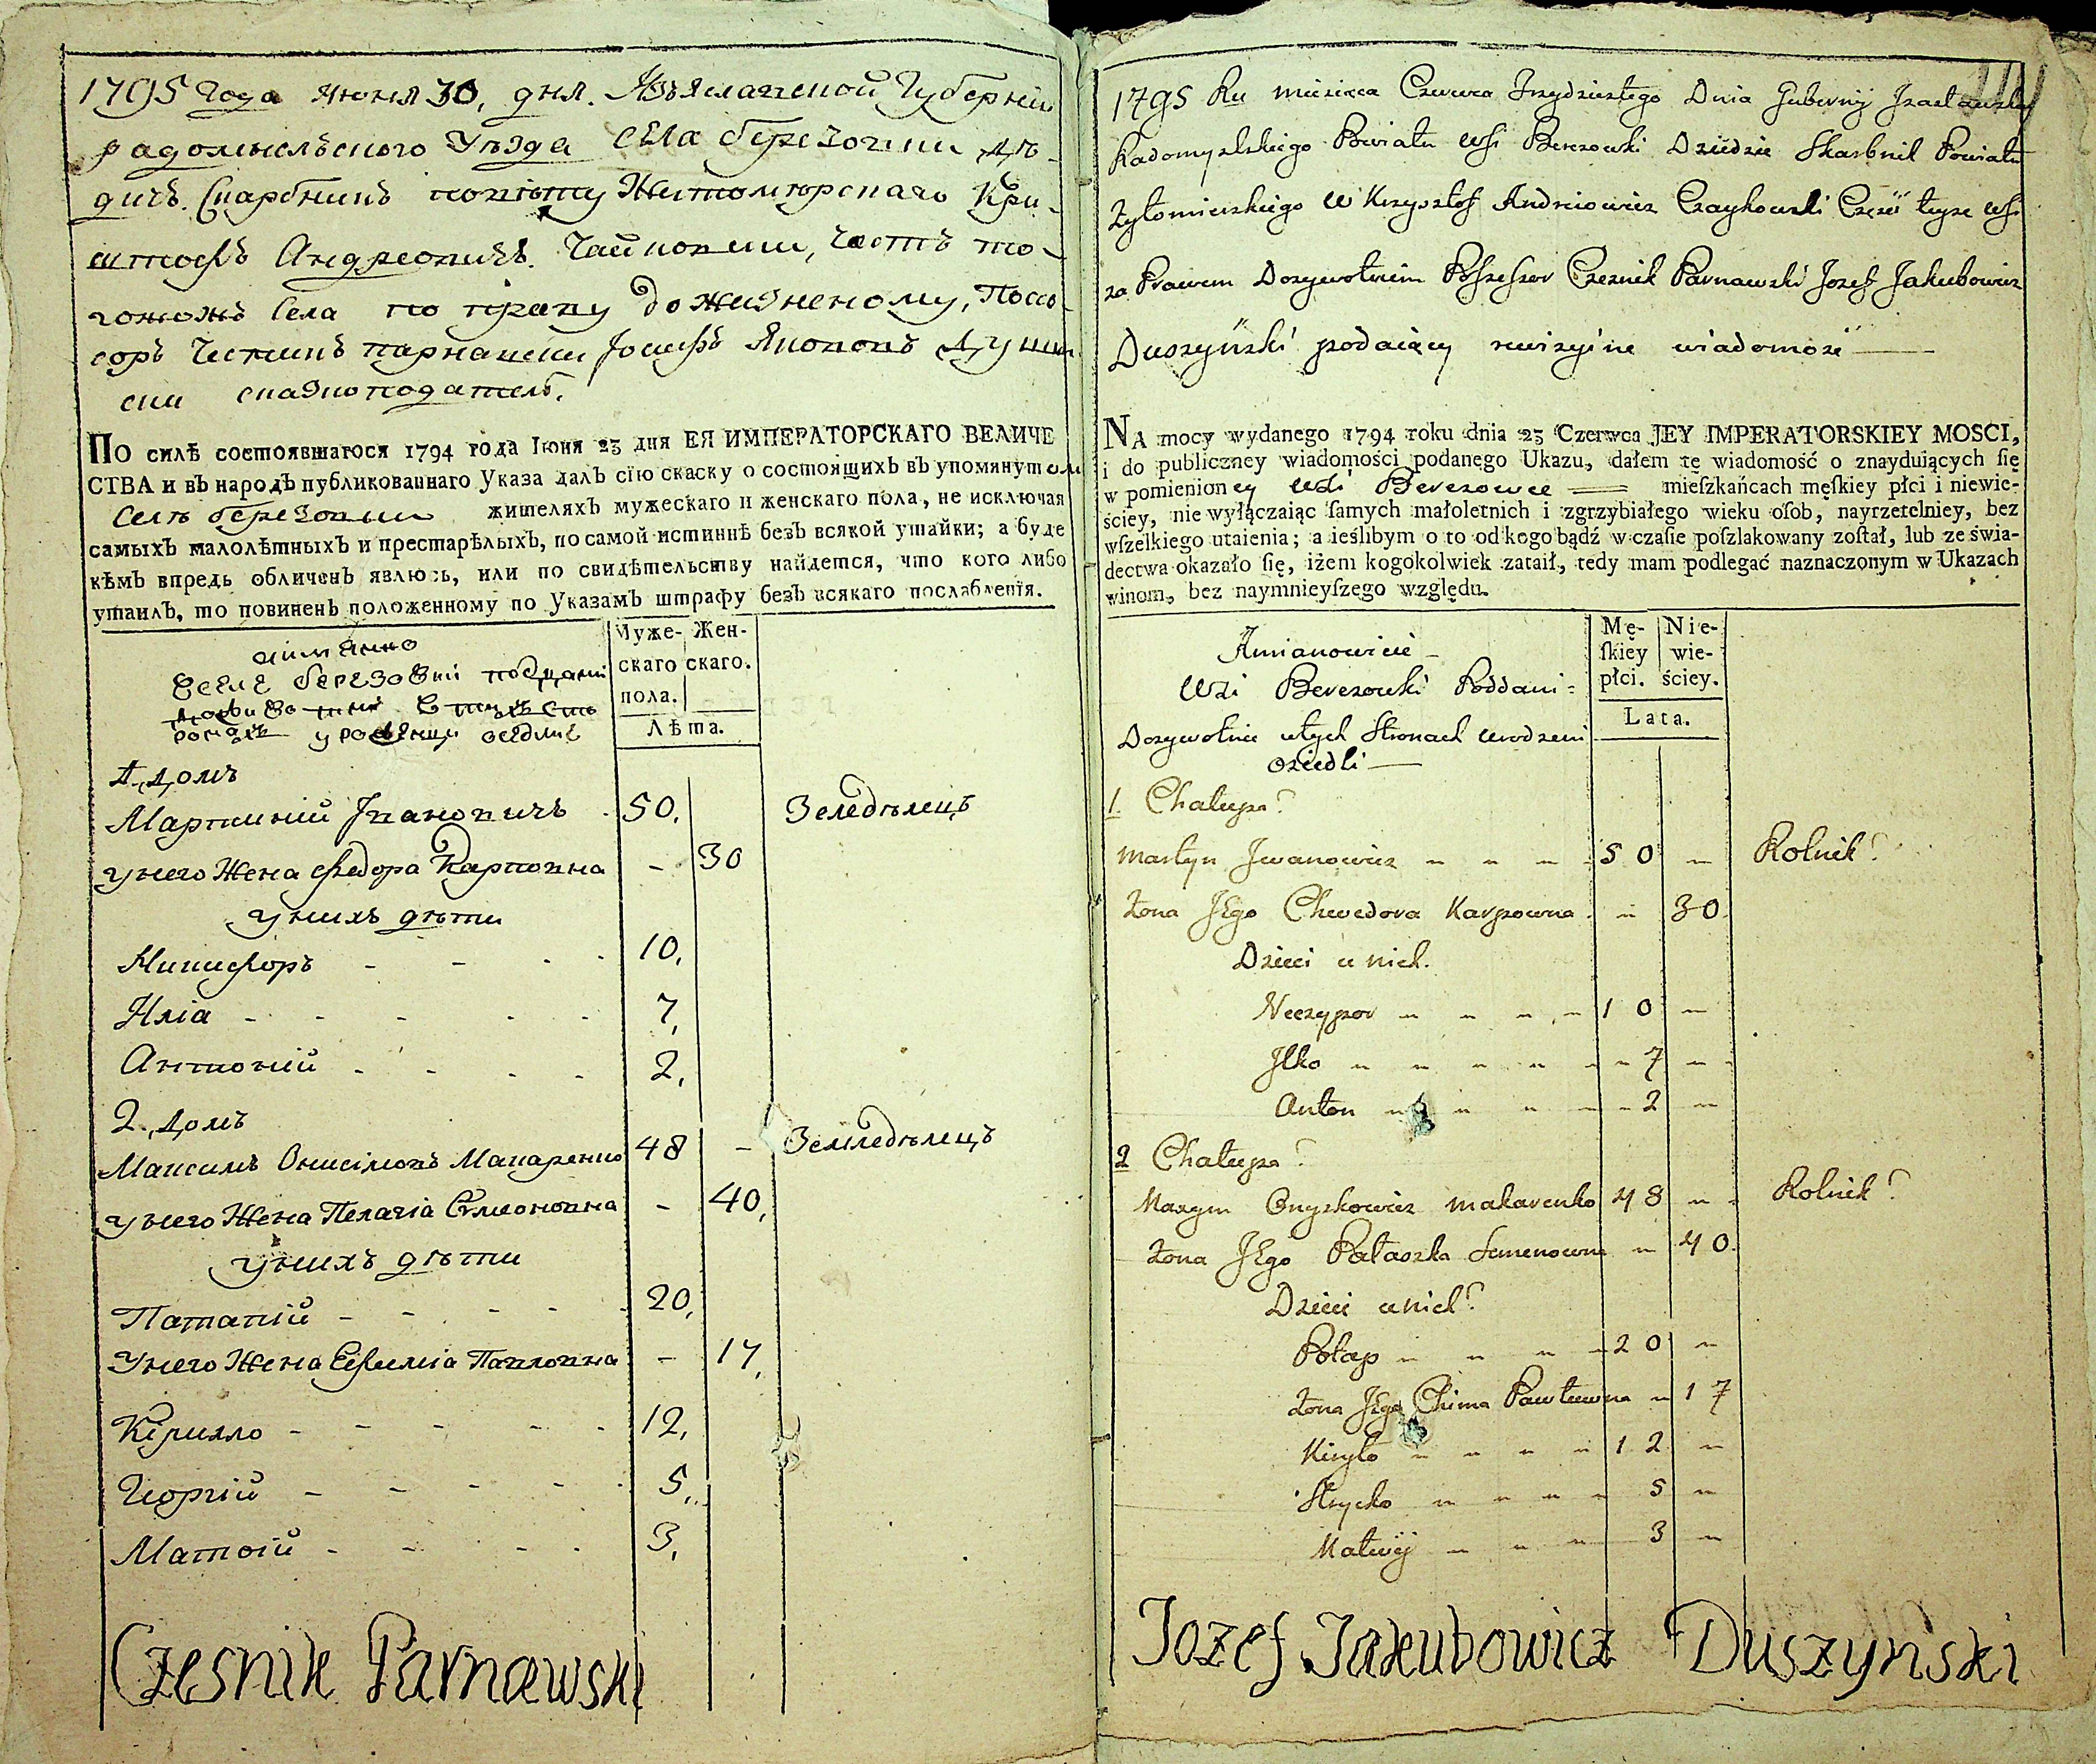 1795 Года Июня 30, дня. Изъяславской Губерніи
радомысльского Уѣзда Села березовки Дѣ-
дичъ. Скарбникъ повѣту Житомѣрскаго Кри-
штофъ Андреовичъ. Чайковски, Часть то-
гожожъ Села по праву дожизненому, Поссе-
соръ Чесникъ парнавски Іосифъ Якововъ Душин
ски сказкоподатель.
ПО силѣ состоявшагося 1794 года Іюня 23 дня ЕЯ ИМПЕРАТОРСКАГО ВЕЛИЧЕ
СТВА и въ народъ публикованнаго Указа далъ сію скаску о состоящихъ въ упомянутом
Селѣ березовки жителяхъ мужескаго и женскаго пола, не исключая
самыхъ малолѣтныхъ и престарѣлыхъ, по самой истиннѣ безъ всякой утайки; а буде
кѣмъ впредь обличенъ явлюсь, или по свидѣтельству найдется, что кого либо
утаилъ, то повиненъ положенному по Указамъ штрафу безъ всякаго послабленія.
аимянно
Муже- Жен-
скаго скаго.
пола.
Лѣта.
1. Домъ
Мартиній Івановичъ 50, Зеледѣлецъ
унего Жена Федора Карповна - 30
унихъ дѣти
Никифоръ - - - - 10,
Иліа - - - - - 7,
Антоній - - - - 2,
2. Домъ
Максимъ Онисімовъ Макаренко 48 - Земледѣлецъ
унего Жена Пелагіа Семионовна - 40,
унихъ дѣти
Патапій - - - - - 20,
Унего Жена Ефиміа Павловна - 17,
Кірилло - - - - - 12,
Георгій - - - - - 5,
Матфій - - - - 3,
Czesnik Parnawski
1795 Ru miesiąca Czerwca Trzydziestego Dnia Gubernij Izasławskiey
Radomyslskiego Powiatu Wsi Berezowki Dziedzic Skarbnik Powiatu
Zytomierskiego W Krzysztof Andreiowicz Czaykowski Część teyze Wsi
za Prawem Dozywotniem Possessor Czesnik Parnawski Jozef Jakubowicz
Duszyński podaiący rewizyine wiadomość
NA mocy wydanego 1794 roku dnia 23 Czerwca JEY IMPERATORSKIEY MOSCI,
i do publiczney wiadomości podanego Ukazu, dałem tę wiadomość o znayduiących ſię
w pomienioney Wsi Berezowce mieſzkańcach męſkiey płci i niewie-
ściey, nie wyłączaiąc ſamych małoletnich i zgrzybiałego wieku oſob, nayrzetelniey, bez
wſzelkiego utaienia; a ieślibym o to od kogo bądź w czaſie poſzlakowany zoſtał, lub ze świa-
dectwa okazało ſię, iżem kogokolwiek zataił, tedy mam podlegać naznaczonym w Ukazach
winom, bez naymnieyſzego względu.
Amianowicie
Wsi Berezowki Poddani
Dozywotnie wtych Stronach urodzeni
osiedli
Mę- Nie-
ſkiey wie-
płci. ściey.
Lata.
1. Chałupa
Martyn Iwanowicz 50 Rolnik
Zona JEgo Chwedora Karpowna 30
Dzieci u nich.
Neczypor 10
Jlko 7
Anton 2
2 Chałupa
Maxym Onyszkowicz Makarenko 48 Rolnik
Zona JEgo Pałaszka Semenowna 40
Dzieci u nich
Potap 20
Zona JEgo Chima Pawłowna 17
Kiryło 12
Hrycko 5
Matwij 3
Jozef Jakubowicz Duszynski